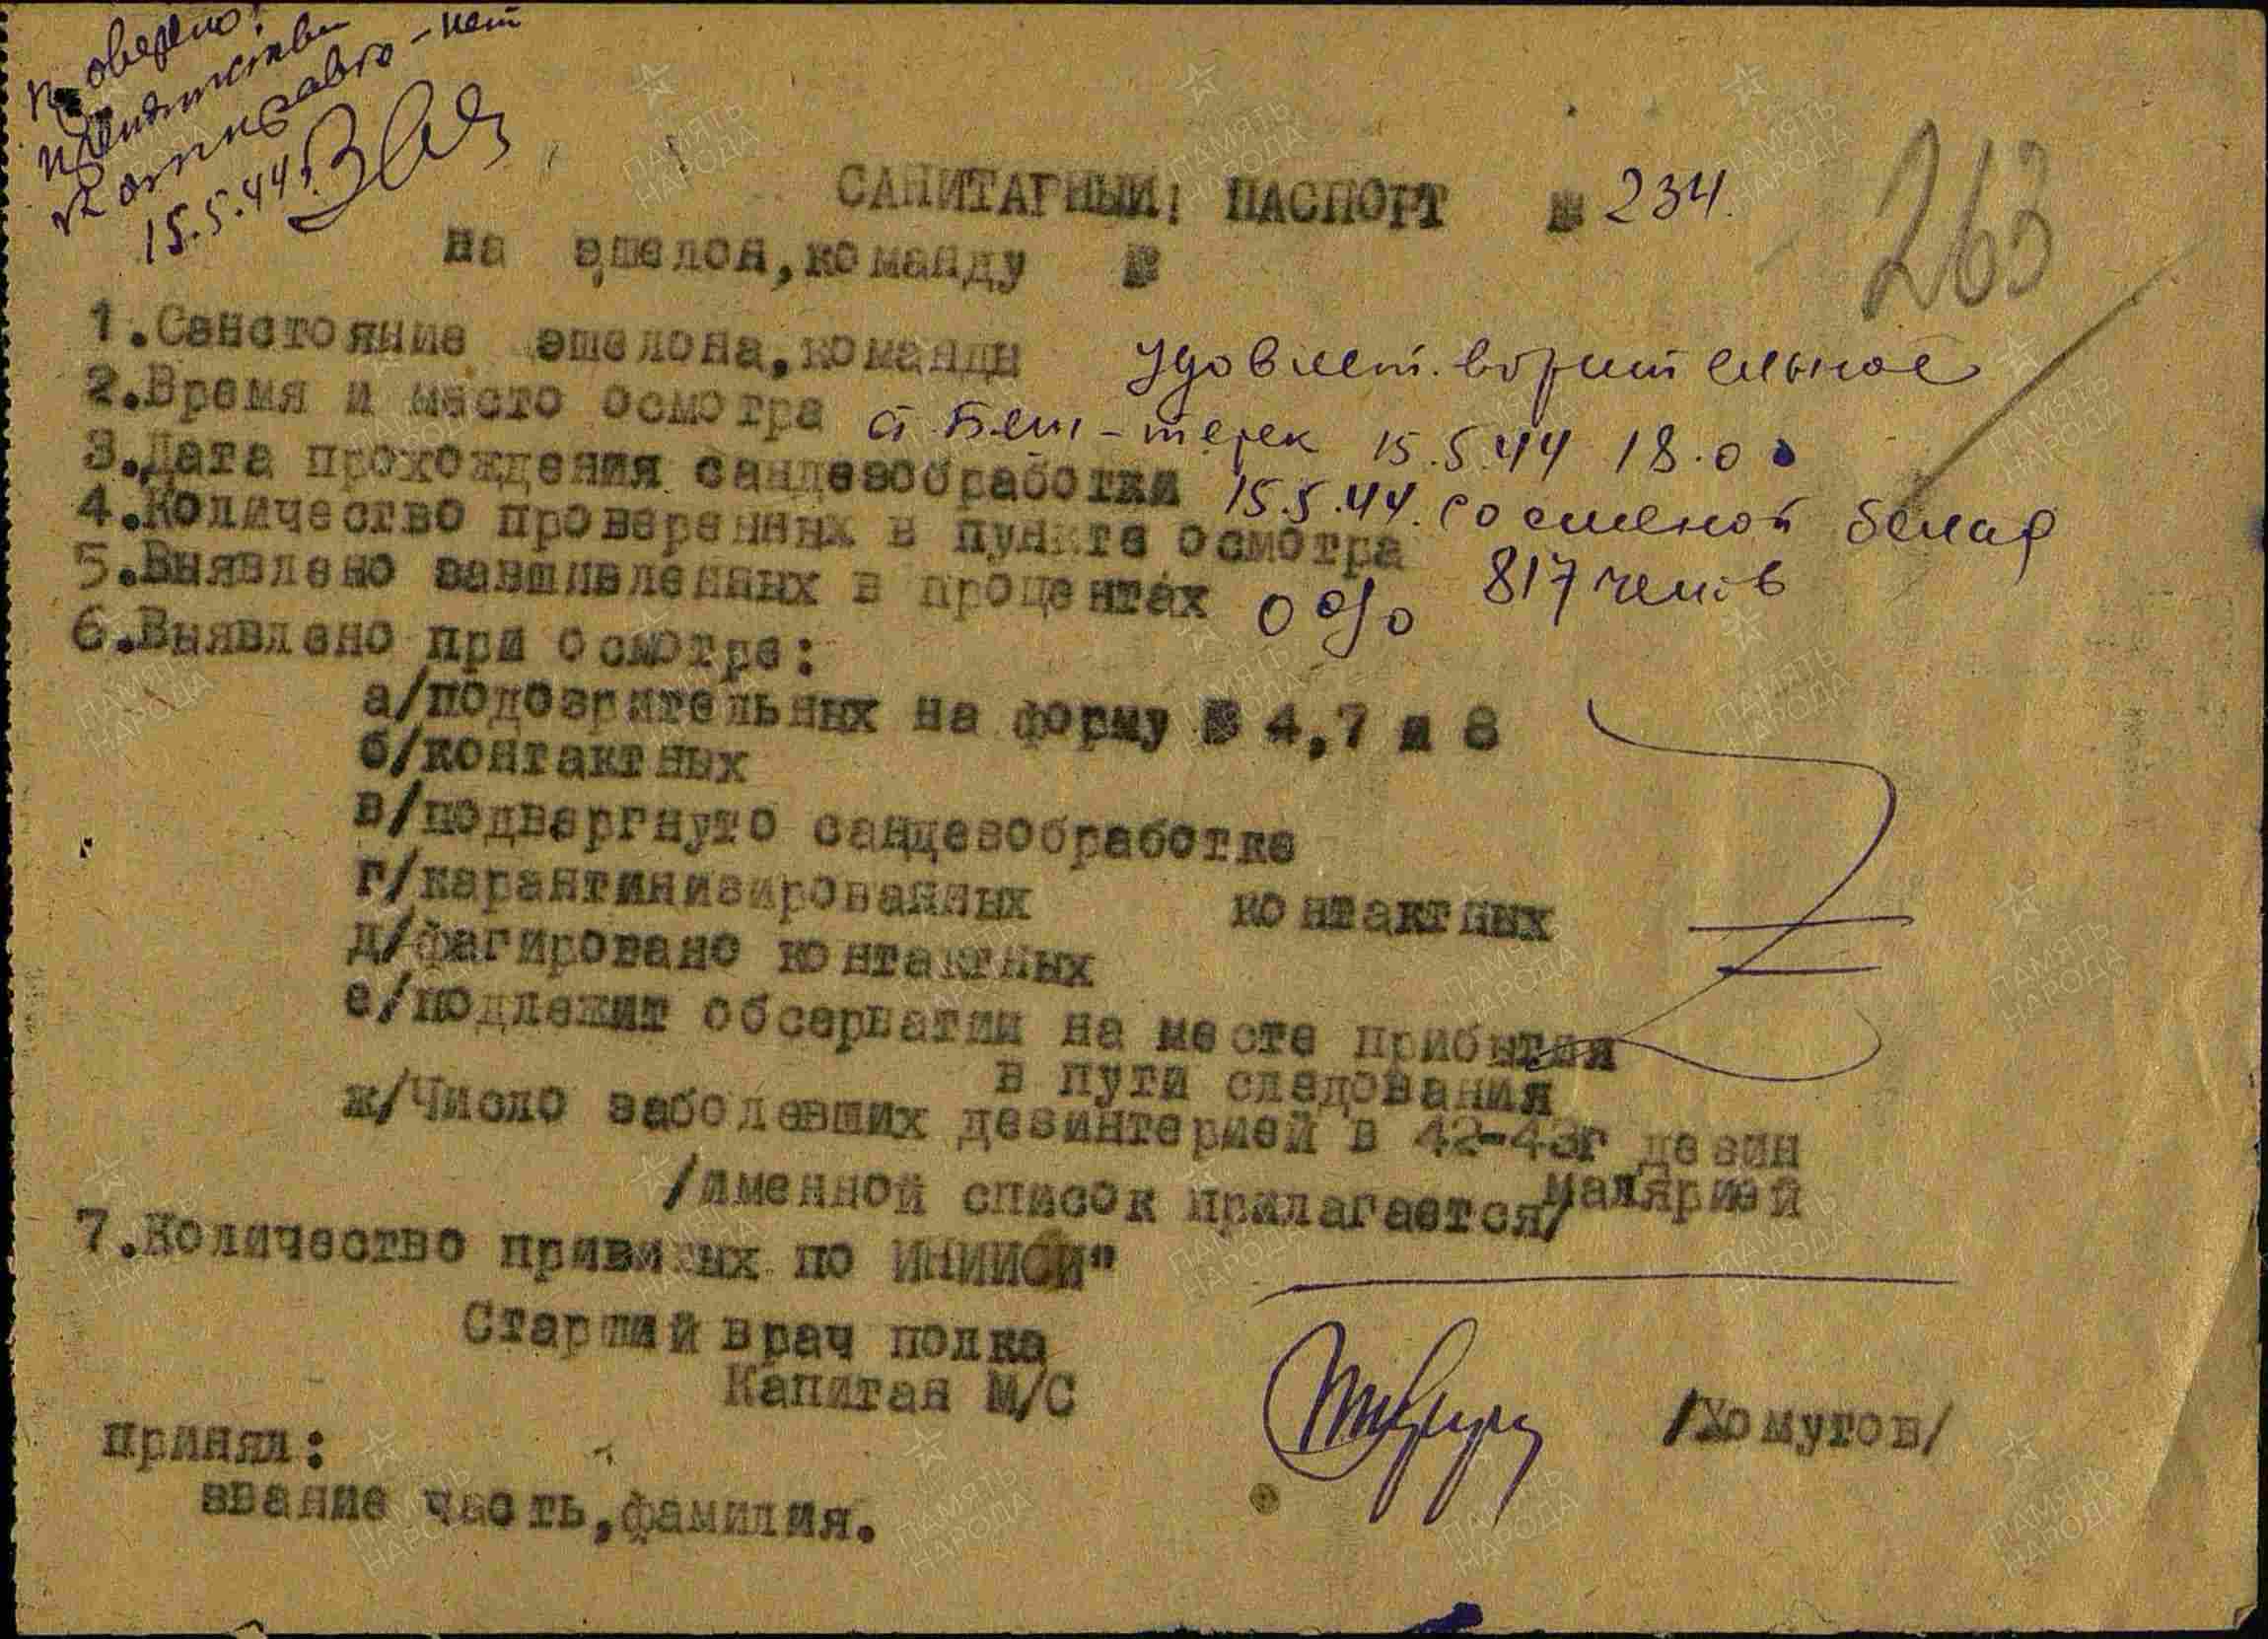 Проверено!
Препятствий
к отправке - нет
15.5.44г.
263
САНИТАРНЫЙ! ПАСПОРТ № 234.
на эшелон,команду №
1.Санстояние эшелона,команды удовлетворительное
2.Время и место осмотра ст Беш-терек 15.5.44 18.00
3.Дата прохождения сандезобработки 15.5.44. со сменой белья
4.Количество проверенных в пункте осмотра 817 чел-в
5.Выявлено завшивленных в процентах 0 %
6.Выявлено при осмотре:
а/подозрительных на форму № 4,7 и 8
б/контактных
в/подвергнуто сандезобработке
г/карантинизированных контактных
д/фагировано контактных
е/подлежит обсерватии на месте прибытия
в пути следования
ж/Число заболевших дезинтерией в 42-43г дезин
малярией
/именной список прилагается/
7.Количество привитых по
Старший врач полка
Капитан М/С /Хомутов/
принял:
звание часть,фамилия.
ПАМЯТЬ НАРОДА